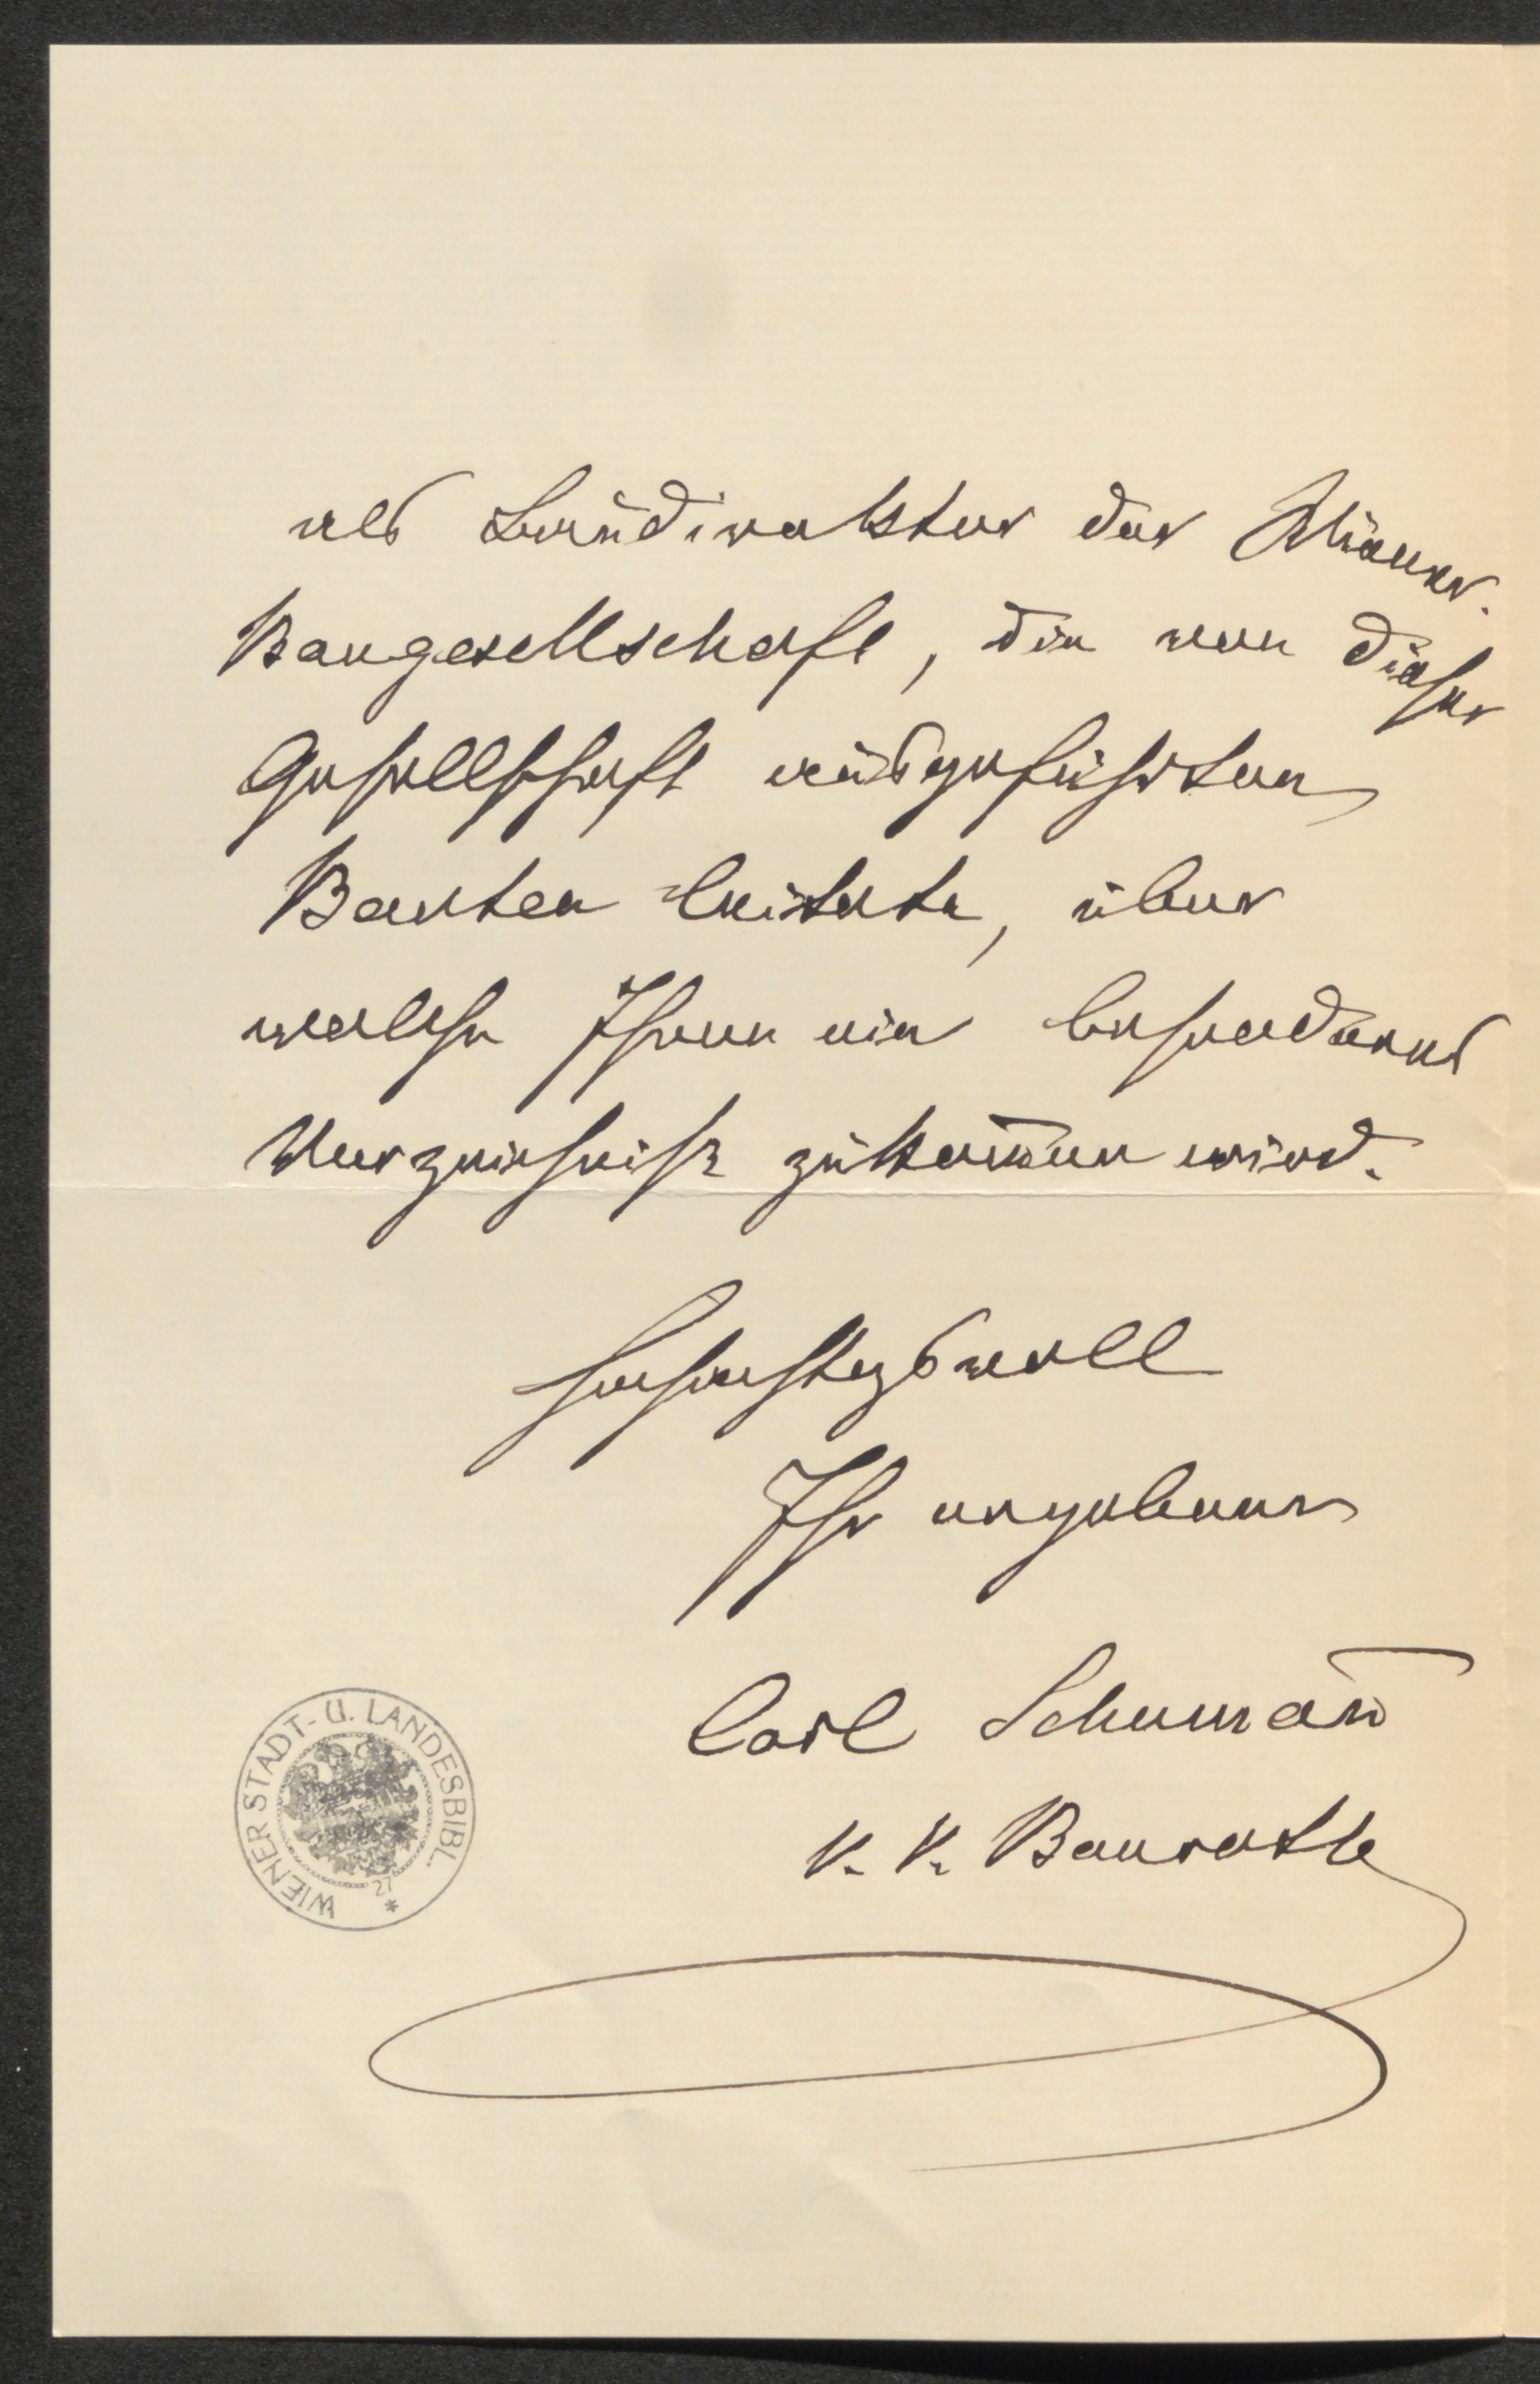 als Baudirektor der Wiener-
Baugesellschaft, die von dieser
Gesellschaft ausgeführten
Bauten leitete, über
welche Ihnen ein besonderes
Verzeichniß zukom̅en wird.
Hochachtungsvoll
Ihr ergebener
Carl Schuman̅
K. K. Baurath
WIENER STADT- U. LANDESBIBL.
27